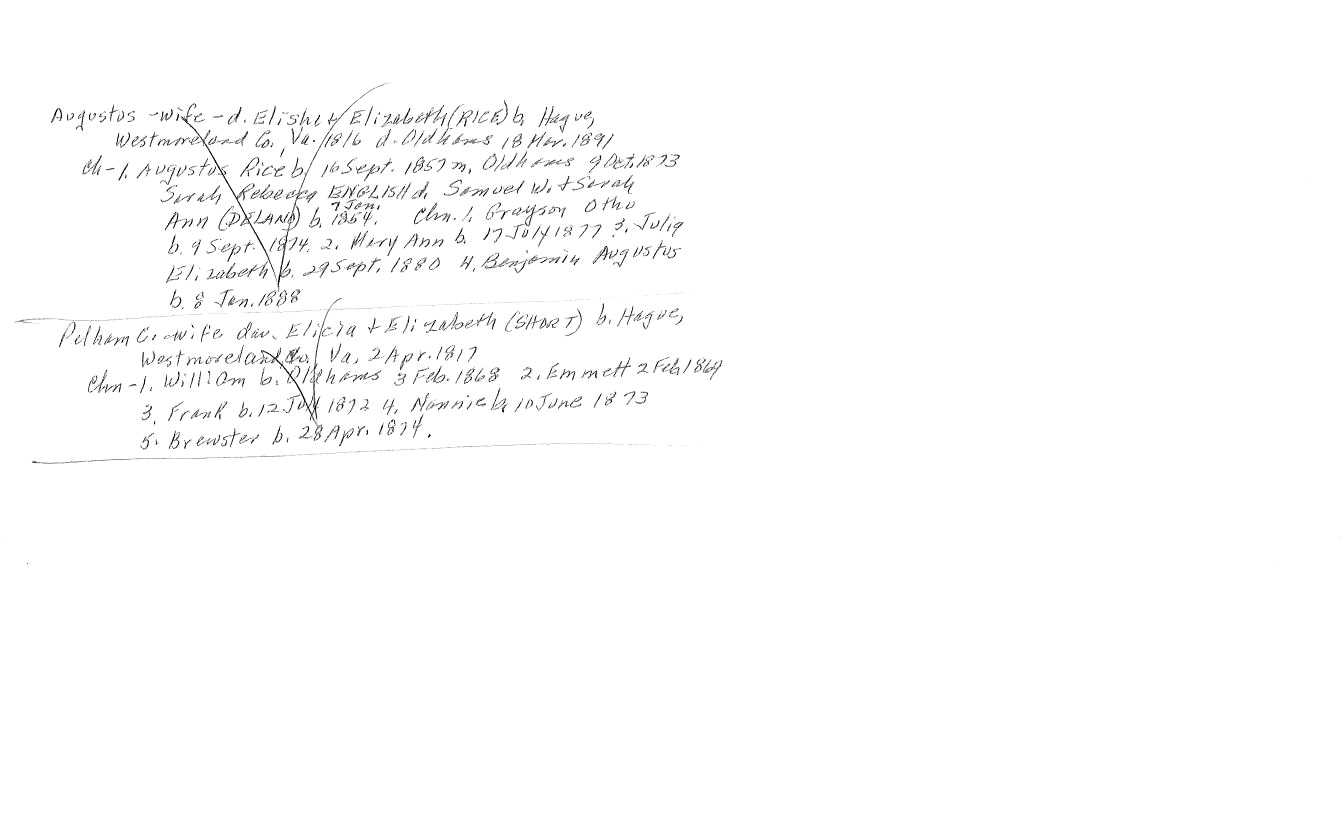 Augustus - wife - d. Elisha & Elizabeth (RICE) b. Hague,
Westmoreland Co., Va. 1816 d. Oldhams 18 Mar. 1891
Ch-1. Augustus Rice b. 16 Sept. 1857 m. Oldhams 9 Oct. 1873
Sarah Rebecca ENGLISH d. Samuel W. & Sarah
Ann (DELAND) b. 7 Jan. 1854. Chn. 1. Grayson Otho
b. 9 Sept. 1874. 2. Mary Ann b. 17 July 1877 3. Julia
Elizabeth b. 29 Sept. 1880 4. Benjamin Augustus
b. 8 Jan. 1888
Pelham C. - wife dau. Elicia & Elizabeth (SHORT) b. Hague,
Westmoreland Co. Va. 2 Apr. 1817
Chn-1. William b. Oldhams 3 Feb. 1868 2. Emmett 2 Feb. 1869
3. Frank b. 12 July 1872 4. Nannie b. 10 June 1873
5. Brewster b. 28 Apr. 1874.